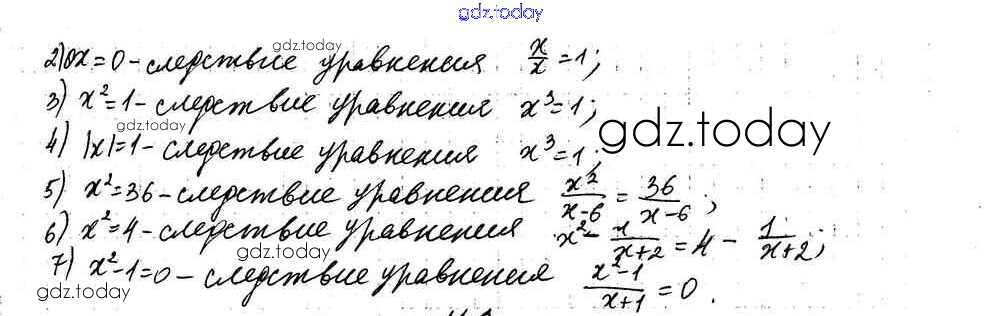 gdz.today
gdz.today
2) 0x = 0 - следствие уравнения x/x = 1;
3) x² = 1 - следствие уравнения x³ = 1;
gdz.today
gdz.today
4) |x| = 1 - следствие уравнения x³ = 1;
5) x² = 36 - следствие уравнения x²/(x-6) = 36/(x-6);
6) x² = 4 - следствие уравнения x² - 1/(x+2) = 4 - 1/(x+2);
7) x² - 1 = 0 - следствие уравнения (x²-1)/(x+1) = 0.
gdz.today